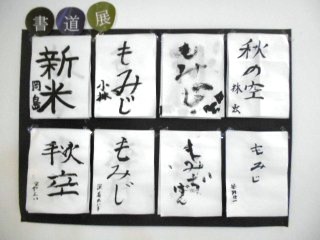 書道展
新米
岡島
もみじ
小林
もみじ
秋の空
林
秋空
もみじ
もみじ
もみじ